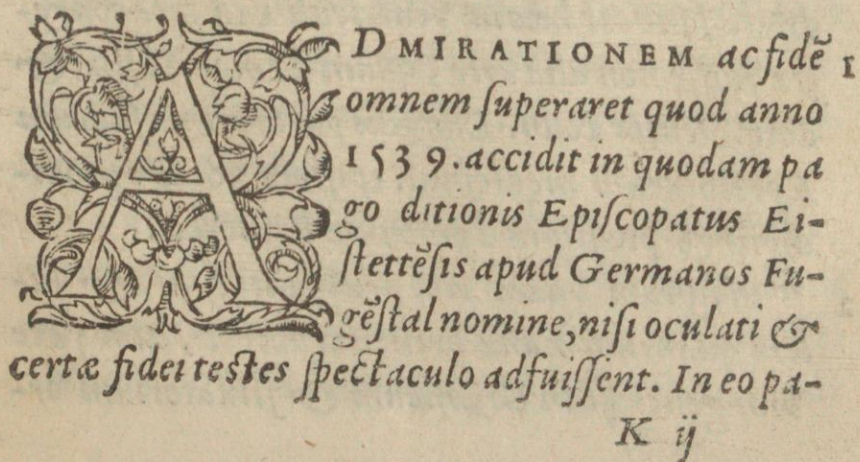 ADMIRATIONEM ac fidē 1
omnem ſuperaret quod anno
1539. accidit in quodam pa
go ditionis Epiſcopatus Ei-
ſtettēſis apud Germanos Fu-
gēſtal nomine, niſi oculati &
certæ fidei testes ſpectaculo adfuiſſent. In eo pa-
K ij